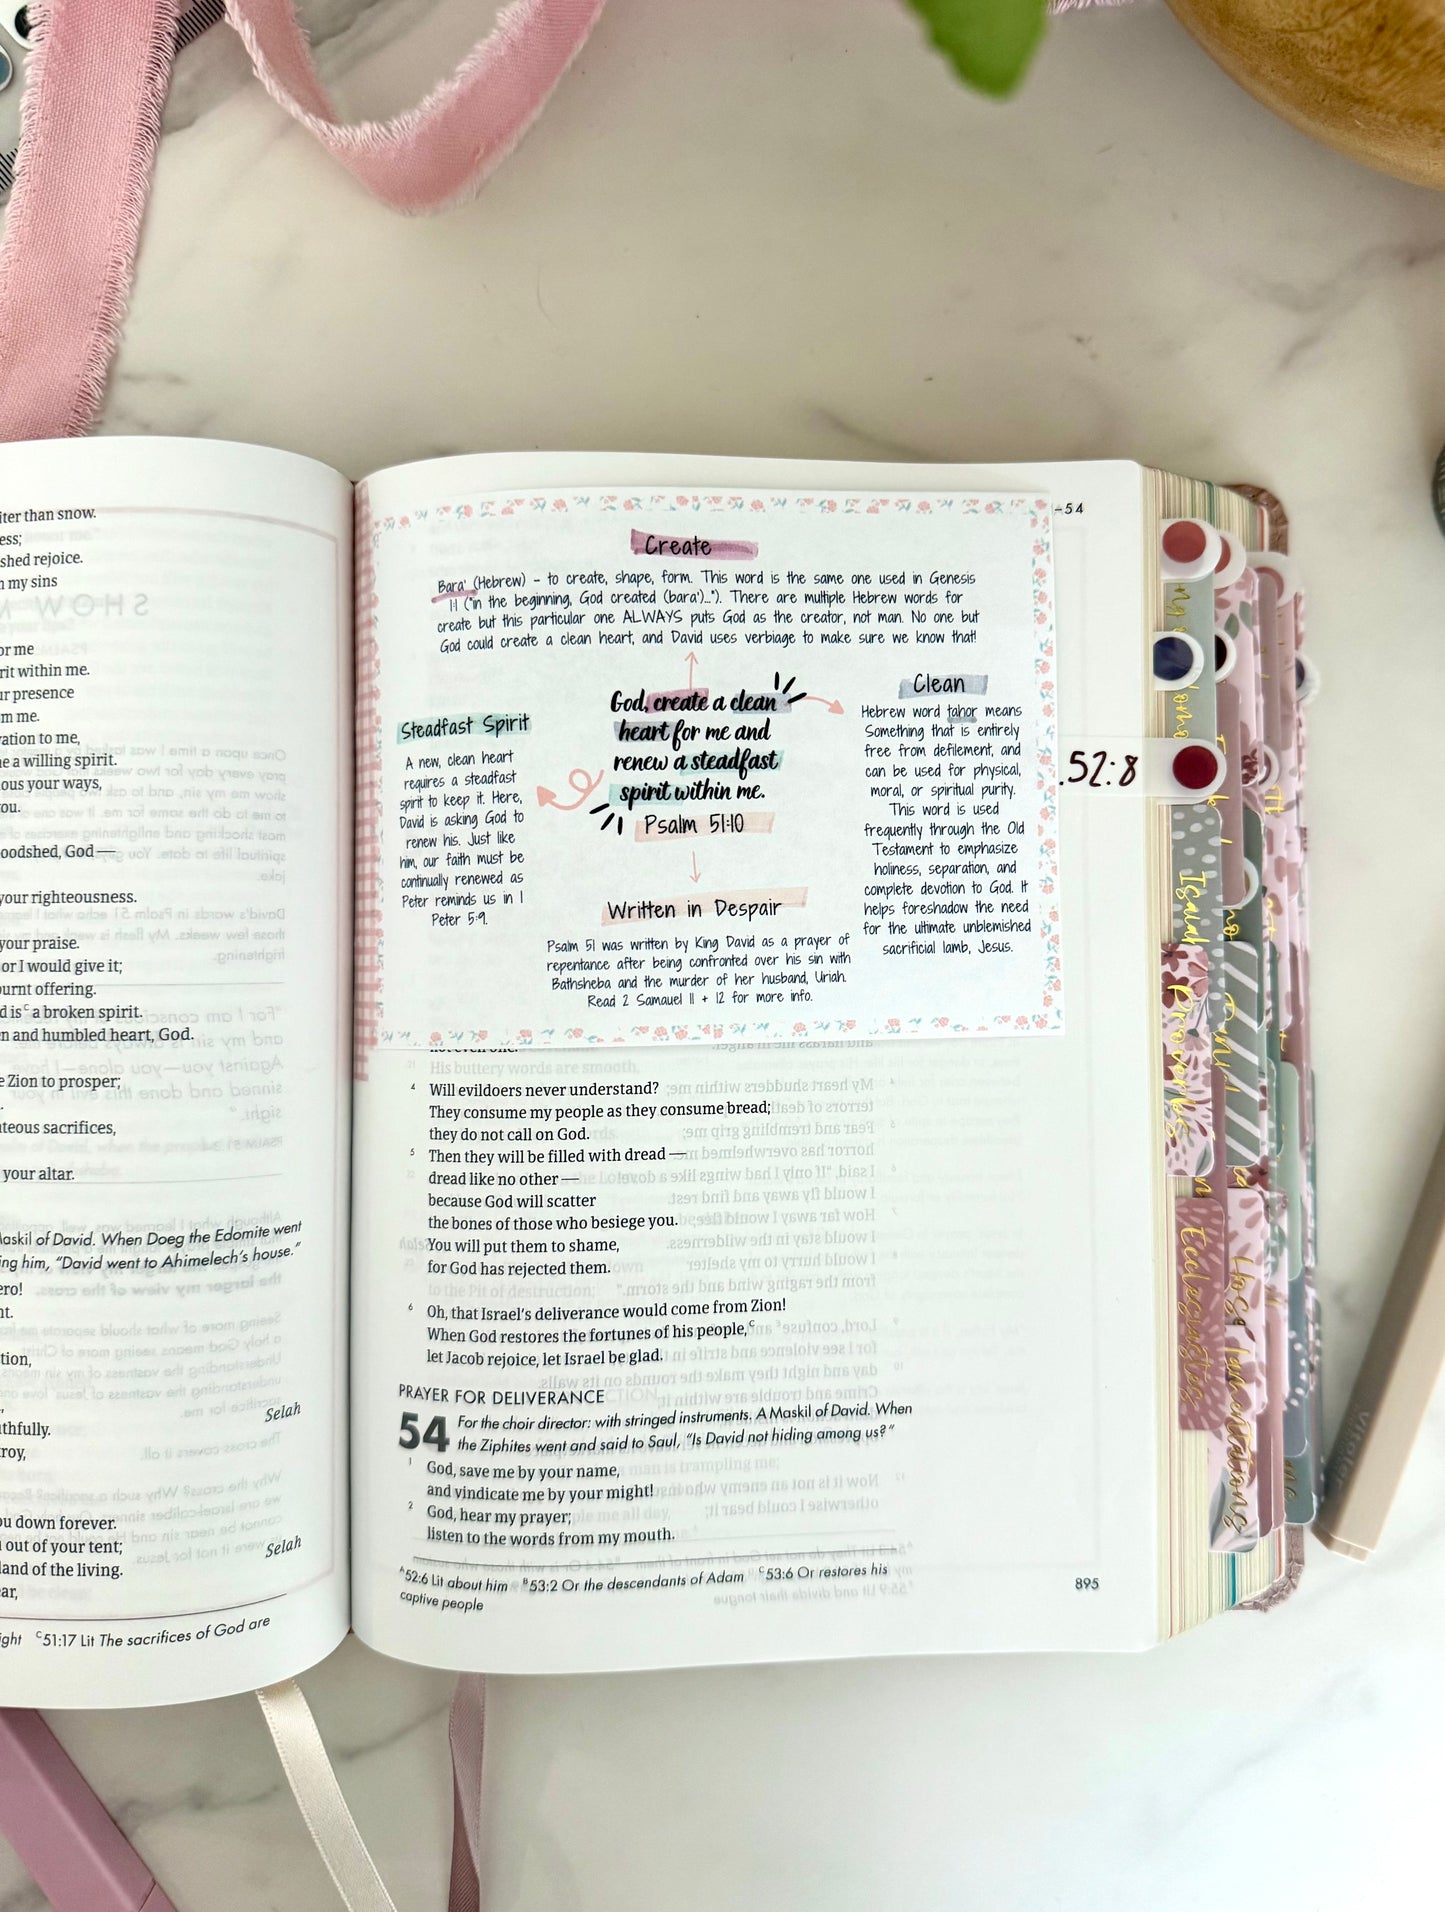 iter than snow.
ess;
shed rejoice.
n my sins
or me
rit within me.
ur presence
m me.
vation to me,
e a willing spirit.
ious your ways,
ou.
oodshed, God —
your righteousness.
your praise.
or I would give it;
ournt offering.
d is C a broken spirit.
n and humbled heart, God.
e Zion to prosper;
teous sacrifices,
your altar.
Maskil of David. When Doeg the Edomite went
ing him, “David went to Ahimelech’s house.”
ero!
nt.
tion,
Selah
thfully.
roy,
ou down forever.
out of your tent;
land of the living.
Selah
ear,
ight C51:17 Lit The sacrifices of God are
-54
Create
Bara' (Hebrew) - to create, shape, form. This word is the same one used in Genesis
1:1 ("in the beginning, God created (bara')..."). There are multiple Hebrew words for
create but this particular one ALWAYS puts God as the creator, not man. No one but
God could create a clean heart, and David uses verbiage to make sure we know that!
God, create a clean
heart for me and
renew a steadfast
spirit within me.
Psalm 51:10
Steadfast Spirit
A new, clean heart
requires a steadfast
spirit to keep it. Here,
David is asking God to
renew his. Just like
him, our faith must be
continually renewed as
Peter reminds us in 1
Peter 5:9.
Clean
Hebrew word tahor means
Something that is entirely
free from defilement, and
can be used for physical,
moral, or spiritual purity.
This word is used
frequently through the Old
Testament to emphasize
holiness, separation, and
complete devotion to God. It
helps foreshadow the need
for the ultimate unblemished
sacrificial lamb, Jesus.
Written in Despair
Psalm 51 was written by King David as a prayer of
repentance after being confronted over his sin with
Bathsheba and the murder of her husband, Uriah.
Read 2 Samauel 11 + 12 for more info.
.52:8
not even one.
4 Will evildoers never understand?
They consume my people as they consume bread;
they do not call on God.
5 Then they will be filled with dread —
dread like no other —
because God will scatter
the bones of those who besiege you.
You will put them to shame,
for God has rejected them.
6 Oh, that Israel’s deliverance would come from Zion!
When God restores the fortunes of his people,C
let Jacob rejoice, let Israel be glad.
PRAYER FOR DELIVERANCE
54 For the choir director: with stringed instruments. A Maskil of David. When
the Ziphites went and said to Saul, “Is David not hiding among us?”
1 God, save me by your name,
and vindicate me by your might!
2 God, hear my prayer;
listen to the words from my mouth.
A52:6 Lit about him B53:2 Or the descendants of Adam C53:6 Or restores his
captive people
895
Proverbs
Ecclesiastes
Lamentations